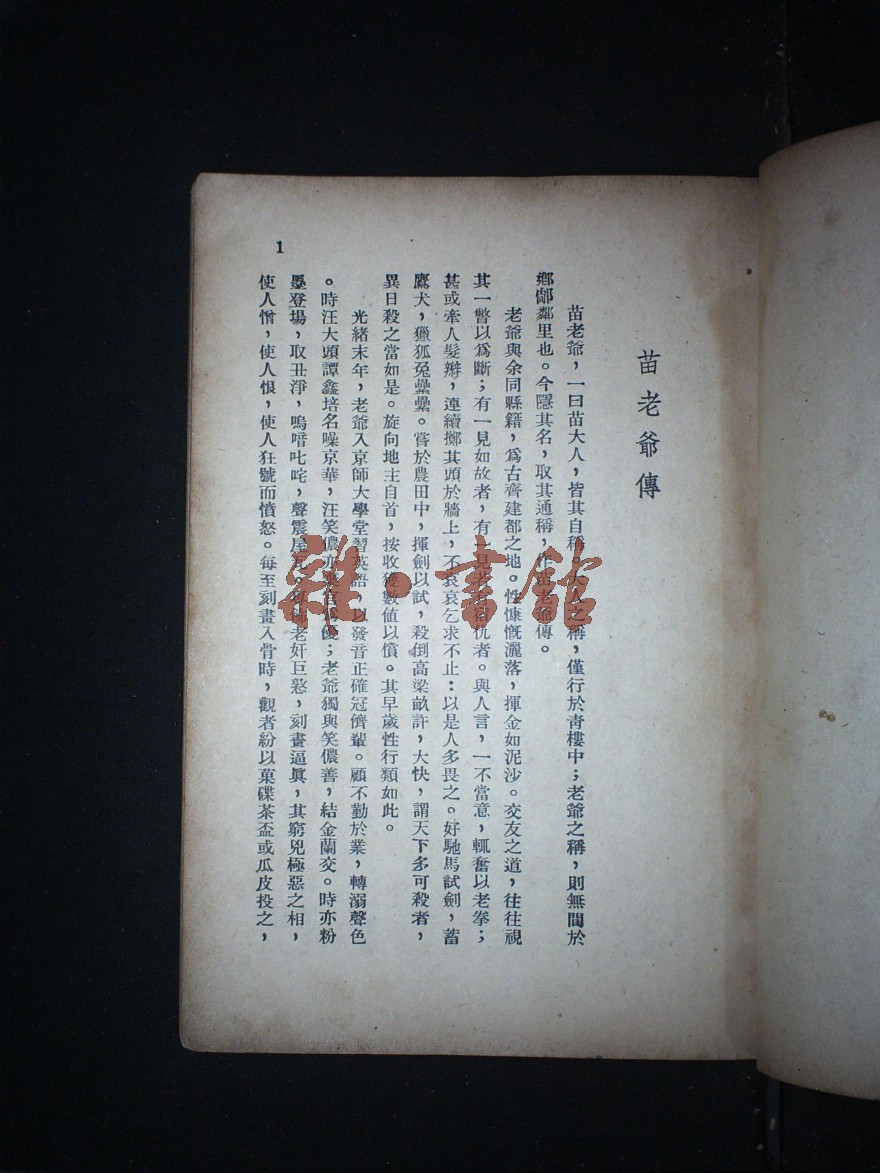 苗老爺傳
苗老爺，一曰苗大人，皆其自稱。大人之稱，僅行於靑樓中；老爺之稱，則無間於
鄉鄙鄰里也。今隱其名，取其通稱，作苗老爺傳。
老爺與余同縣籍，爲古齊建都之地。性慷慨灑落，揮金如泥沙。交友之道，往往視
其一瞥以爲斷；有一見如故者，有一見者宿仇者。與人言，一不當意，輒奮以老拳；
甚或牽人髮辮，連續擲其頭於牆上，不哀哀乞求不止：以是人多畏之。好馳馬試劍，蓄
鷹犬，獵狐兔纍纍。嘗於農田中，揮劍以試，殺倒高梁畝許，大快，謂天下多可殺者，
異日殺之當如是。旋向地主自首，按收穫數値以償。其早歲性行類如此。
光緒末年，老爺入京師大學堂習英語，以發音正確冠儕輩。顧不勤於業，轉溺聲色
。時汪大頭譚鑫培名噪京華，汪笑儂亦棄官爲優；老爺獨與笑儂善，結金蘭交。時亦粉
墨登場，取丑淨，嗚喑叱咤，聲震屋瓦。 老奸巨憝，刻畫逼眞，其窮兇極惡之相，
使人憎，使人恨，使人狂號而憤怒。每至刻畫入骨時，觀者紛以菓碟茶盃或瓜皮投之，
1
雜·書館